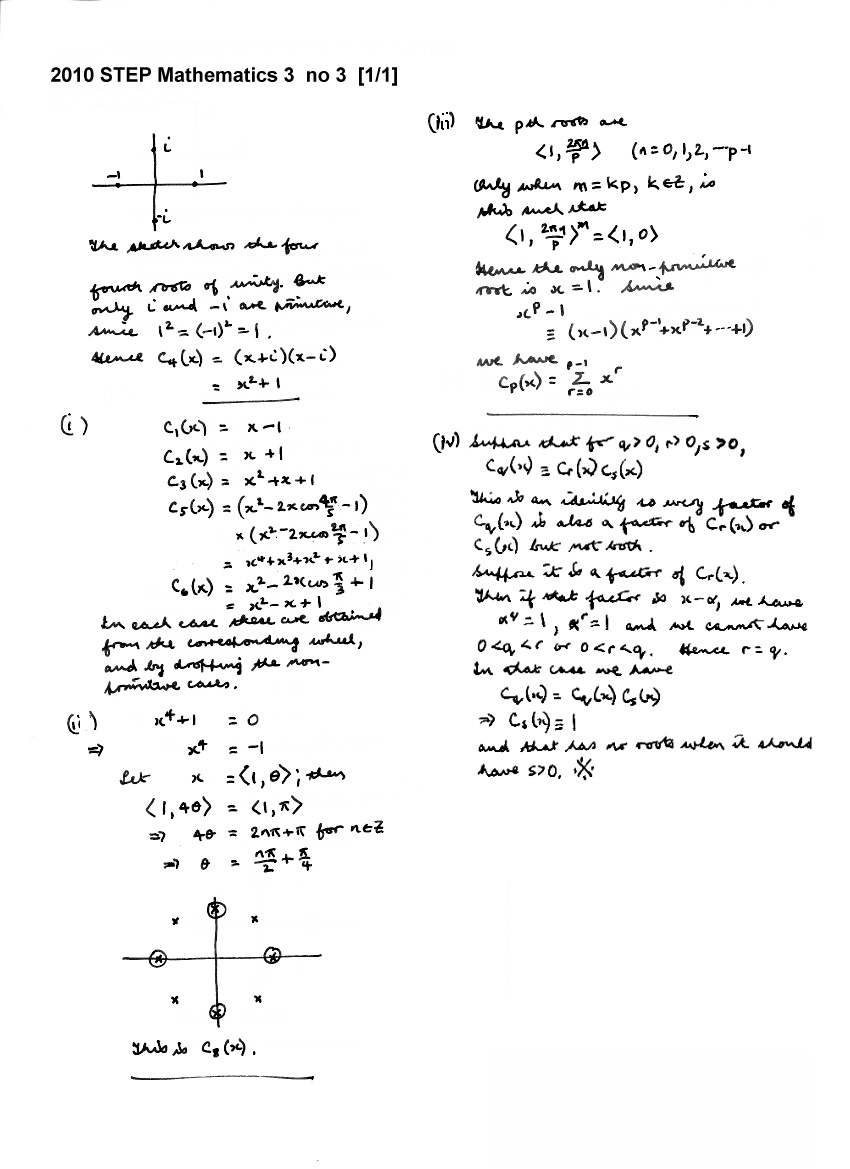 2010 STEP Mathematics 3 no 3 [1/1]
i
-1 1
-i
The sketch shows the four
fourth roots of unity. But
only i and -i are primitive,
since 1² = (-1)² = 1.
Hence C₄(x) = (x+i)(x-i)
= x²+1
(i) C₁(x) = x-1
C₂(x) = x+1
C₃(x) = x²+x+1
C₅(x) = (x²-2x cos 4π/5 -1)
× (x²-2x cos 2π/5 -1)
= x⁴+x³+x²+x+1,
C₆(x) = x²-2x cos π/3 +1
= x²-x+1
In each case these are obtained
from the corresponding wheel,
and by dropping the non-
primitive cases.
(ii) x⁴+1 = 0
⇒ x⁴ = -1
Let x = ⟨1, θ⟩; then
⟨1, 4θ⟩ = ⟨1, π⟩
⇒ 4θ = 2nπ+π for n∈Z
⇒ θ = nπ/2 + π/4
This is C₈(x).
(iii) The pth roots are
⟨1, 2πn/p⟩ (n=0,1,2,--p-1
Only when m=kp, k∈Z, is
this such that
⟨1, 2πn/p⟩ᵐ = ⟨1, 0⟩
Hence the only non-primitive
root is x=1. Since
xᵖ-1
≡ (x-1)(xᵖ⁻¹+xᵖ⁻²+...+1)
we have
Cp(x) = Σ_{r=0}^{p-1} xʳ
(iv) Suppose that for q>0, r>0, s>0,
Cq(x) ≡ Cr(x) Cs(x)
This is an identity so every factor of
Cq(x) is also a factor of Cr(x) or
Cs(x) but not both.
Suppose it is a factor of Cr(x).
Then if that factor is x-α, we have
α^q=1, α^r=1 and we cannot have
0<q<r or 0<r<q. Hence r=q.
In that case we have
Cq(x) = Cq(x) Cs(x)
⇒ Cs(x) ≡ 1
and that has no roots when it should
have s>0. ※